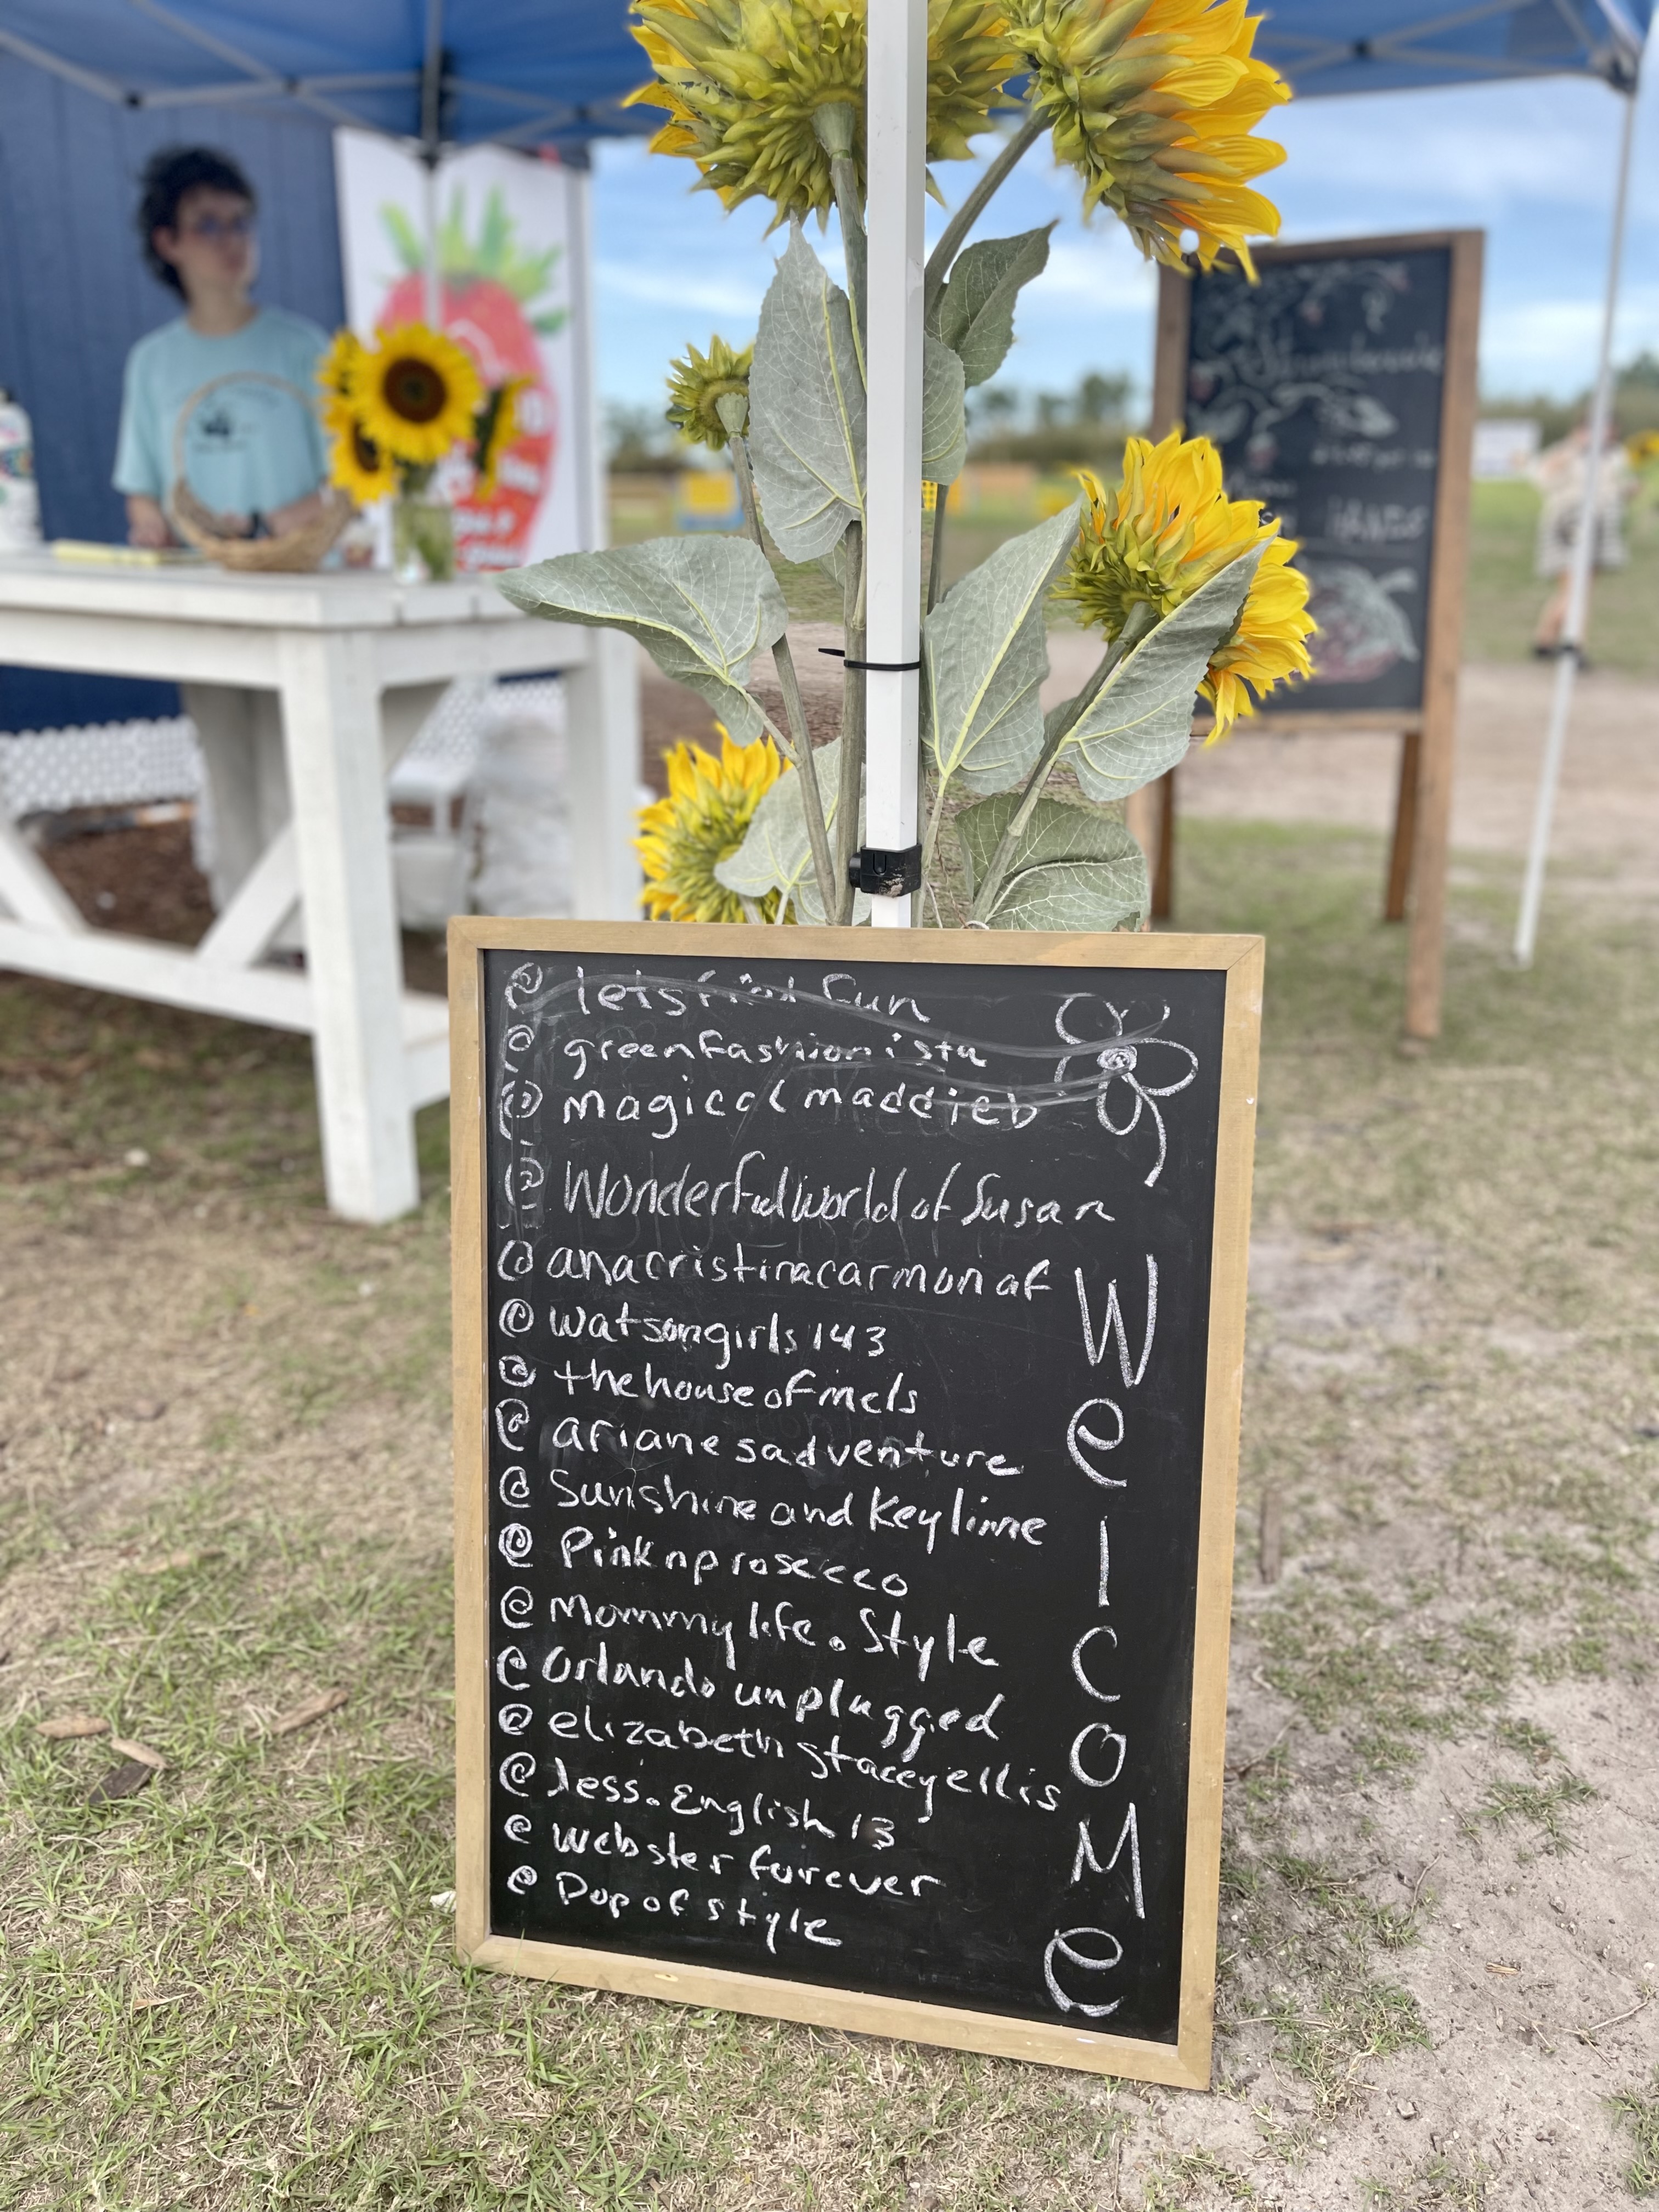 @ letsfind fun
@ greenfashionista
@ magical maddieb
@ WonderfulWorldofSusan
@ anacristinacarmonaf
@ watsongirls143
@ thehouseofmels
@ arianesadventure
@ Sunshine and Keylime
@ Pinknprosecco
@ Mommylife.Style
@ Orlando unplugged
@ elizabeth staceyellis
@ Jess.English13
@ webster forever
@ Pop of style
WelcoMe